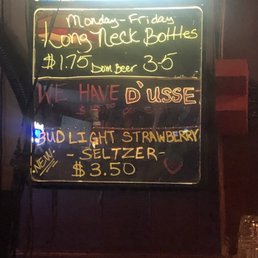 Monday-Friday
Long Neck Bottles
$1.75 Dom Beer 3-5
WE HAVE D'USSE
BUD LIGHT STRAWBERRY
NEW -SELTZER-
$3.50